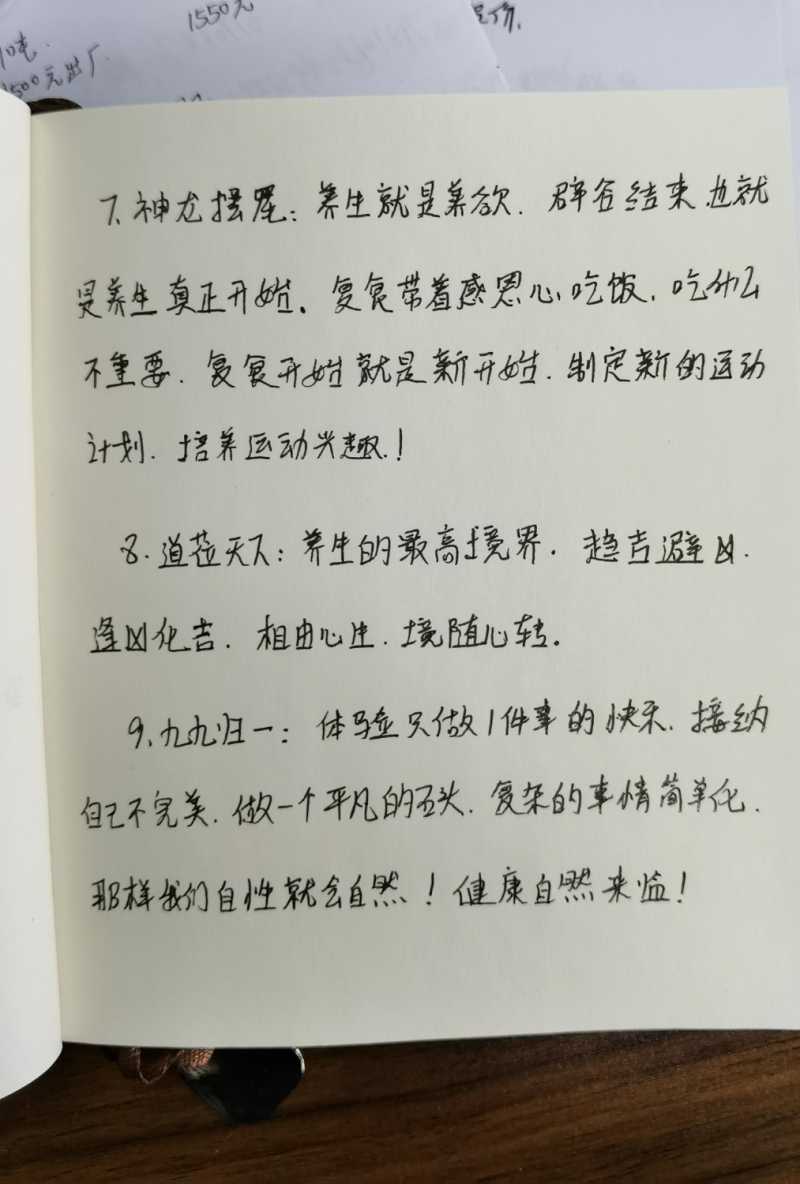 1550元
10吨.
500元出厂
7.神龙摆尾：养生就是养欲. 辟谷结束也就
是养生真正开始。复食带着感恩心吃饭. 吃什么
不重要. 复食开始就是新开始. 制定新的运动
计划. 培养运动兴趣.！
8.道莅天下：养生的最高境界. 趋吉避凶.
逢凶化吉. 相由心生. 境随心转。
9.九九归一：体验只做1件事的快乐. 接纳
自己不完美. 做一个平凡的石头. 复杂的事情简单化.
那样我们自性就会自然！健康自然来临！